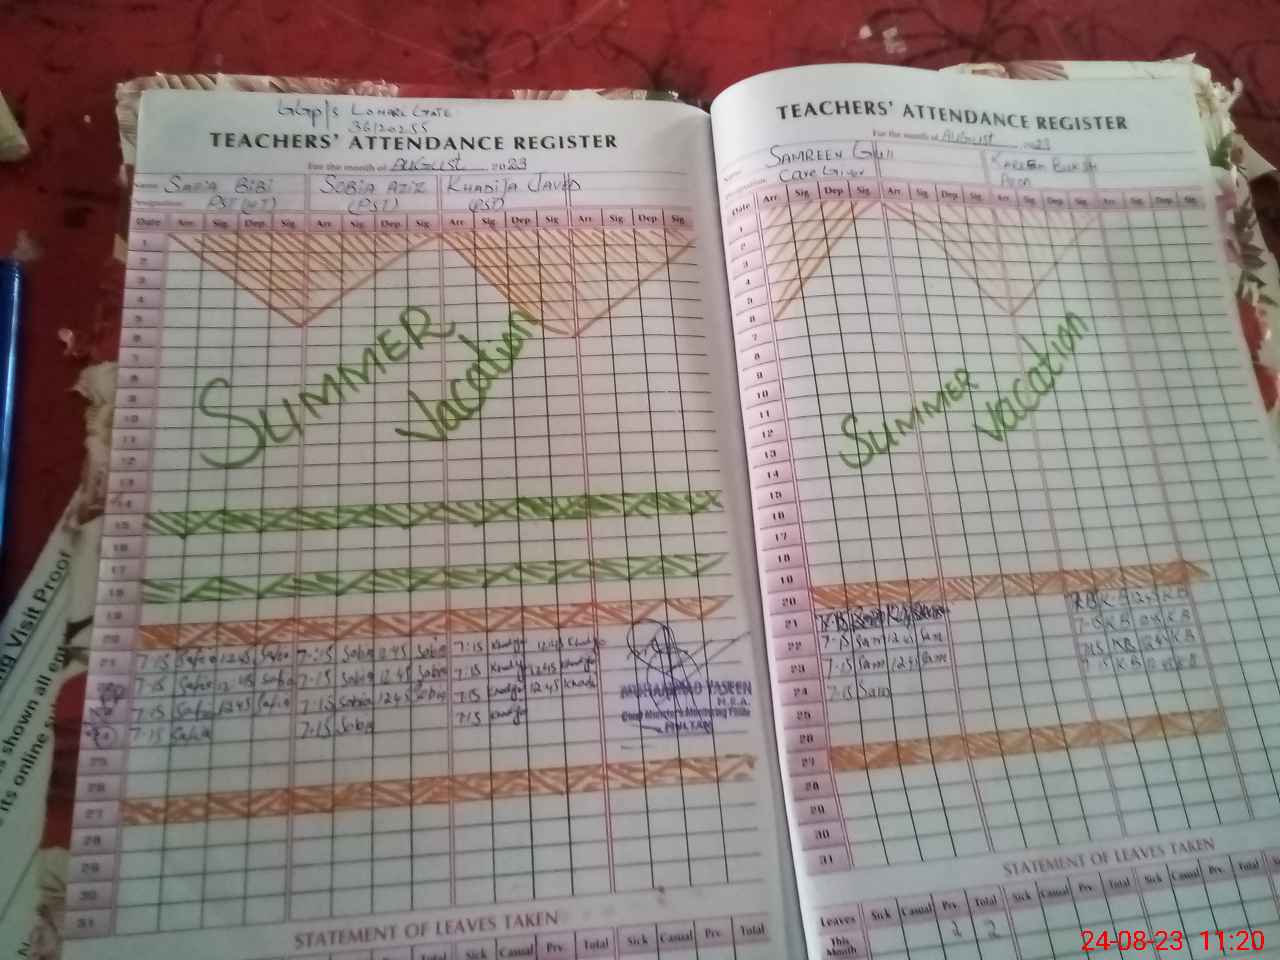 GGP/S LOHARI GATE
36120255
TEACHERS' ATTENDANCE REGISTER
For the month of AUGUST 2023
Name SAFIA BIBI SOBIA AZIZ KHADIJA JAVED
Designation PST (HT) (PST) (PST)
Date Arr. Sig. Dep. Sig. Arr. Sig. Dep. Sig. Arr. Sig. Dep. Sig. Arr. Sig. Dep. Sig.
1
2
3
4
5
6
7
8
9
10
11
12
13
14
15
16
17
18
19
20
SUMMER
Vacation
21 7:15 Safia 12:45 Safia 7:15 Sobia 12:45 Sobia 7:15 Khadija 12:45 Khadija
7:15 Safia 12:45 Safia 7:15 Sobia 12:45 Sobia 7:15 Khadija 12:45 Khadija
7:15 Safia 12:45 Safia 7:15 Sobia 12:45 Sobia 7:15 Khadija 12:45 Khadija
7:15 Safia 7:15 Sobia 7:15 Khadija
25
26
27
28
29
30
31
MUHAMMAD YASEEN
M.E.A.
Chief Minister's Monitoring Force
MULTAN
STATEMENT OF LEAVES TAKEN
Sick Casual Prv. Total Sick Casual Prv. Total
TEACHERS' ATTENDANCE REGISTER
For the month of AUGUST 2023
Name SAMREEN Gull KAREEM Buksh
Designation Care Giver
Date Arr. Sig. Dep. Sig. Arr. Sig. Dep. Sig. Arr. Sig. Dep. Sig. Arr. Sig. Dep. Sig.
1
2
3
4
5
6
7
8
9
10
11
12
13
14
15
16
17
18
19
20
SUMMER
Vacation
21 K.B 12:45 K.B
22 7:15 Sam 12:45 Sam 7:15 K.B 12:45 K.B
23 7:15 Sam 12:45 Sam 7:15 K.B 12:45 K.B
24 7:15 Sam 7:15 K.B 12:45 K.B
25
26
27
28
29
30
31
STATEMENT OF LEAVES TAKEN
Leaves Sick Casual Prv. Total Sick Casual Prv. Total Sick Casual Prv. Total
This Month 2 2
ng Visit Proof
s shown all en
its online
24-08-23 11:20